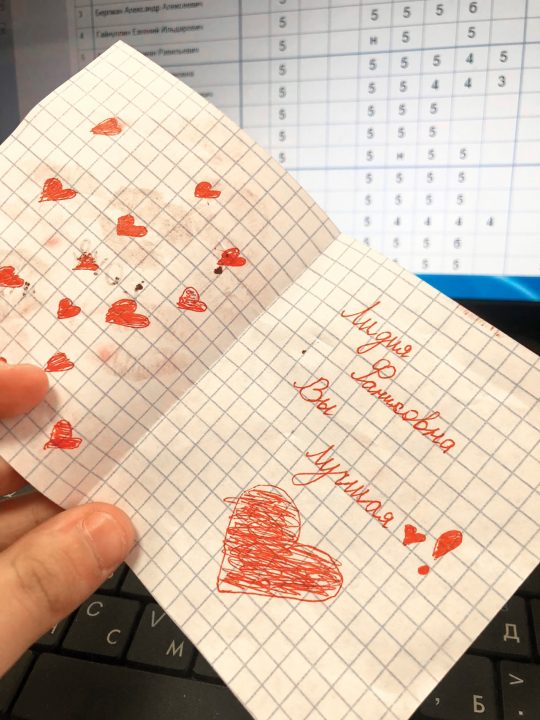 3 Бергман Александр Алексеевич 5 5 5 5 6
4 Гайнуллин Евгений Ильдарович 5 н 5 5
5 5 5 5 4 5
5 5 5 4 4 3
5 5 5 5
5 5 5 5
5 5 н 5 5
5 5 5 5
5 5 5 5
5 4 4 4 4
5 5 5 6
5 5 5
Лидия
Фаниковна
Вы
Лучшая !
C
С
V
М
Д
>
Б